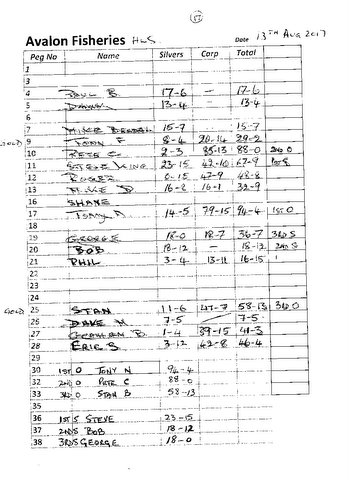 Avalon Fisheries HWS Date 13TH Aug 2017
Peg No Name Silvers Carp Total
1
3
4 PAUL B 17-6 — 17-6
5 DANNY 13-4 — 13-4
7 MIKE 15-7 15-7
GOLD 9 JOHN F 8-4 20-14 29-2
10 PETE C 2-3 85-13 88-0 2ND O
11 STEVE KING 23-15 43-10 67-9 1st S
12 ROGER 0-15 47-9 48-8
13 MIKE D 16-8 16-1 32-9
16 SHANE
17 TONY N 14-5 79-15 94-4 1st O
18
19 GEORGE 18-0 18-7 36-7 3RD S
20 BOB 18-12 — 18-12 2ND S
21 PHIL 3-4 13-11 16-15
22
23
24
GOLD 25 STAN 11-6 47-7 58-13 3RD O
26 DAVE 7-5 7-5
27 GRAHAM B 1-4 39-15 41-3
28 ERIC S 3-12 42-8 46-4
30 1ST O TONY N 94-4
32 2ND O PETE C 88-0
33 3RD O STAN B 58-13
35
36 1ST S STEVE 23-15
37 2ND S BOB 18-12
38 3RD S GEORGE 18-0